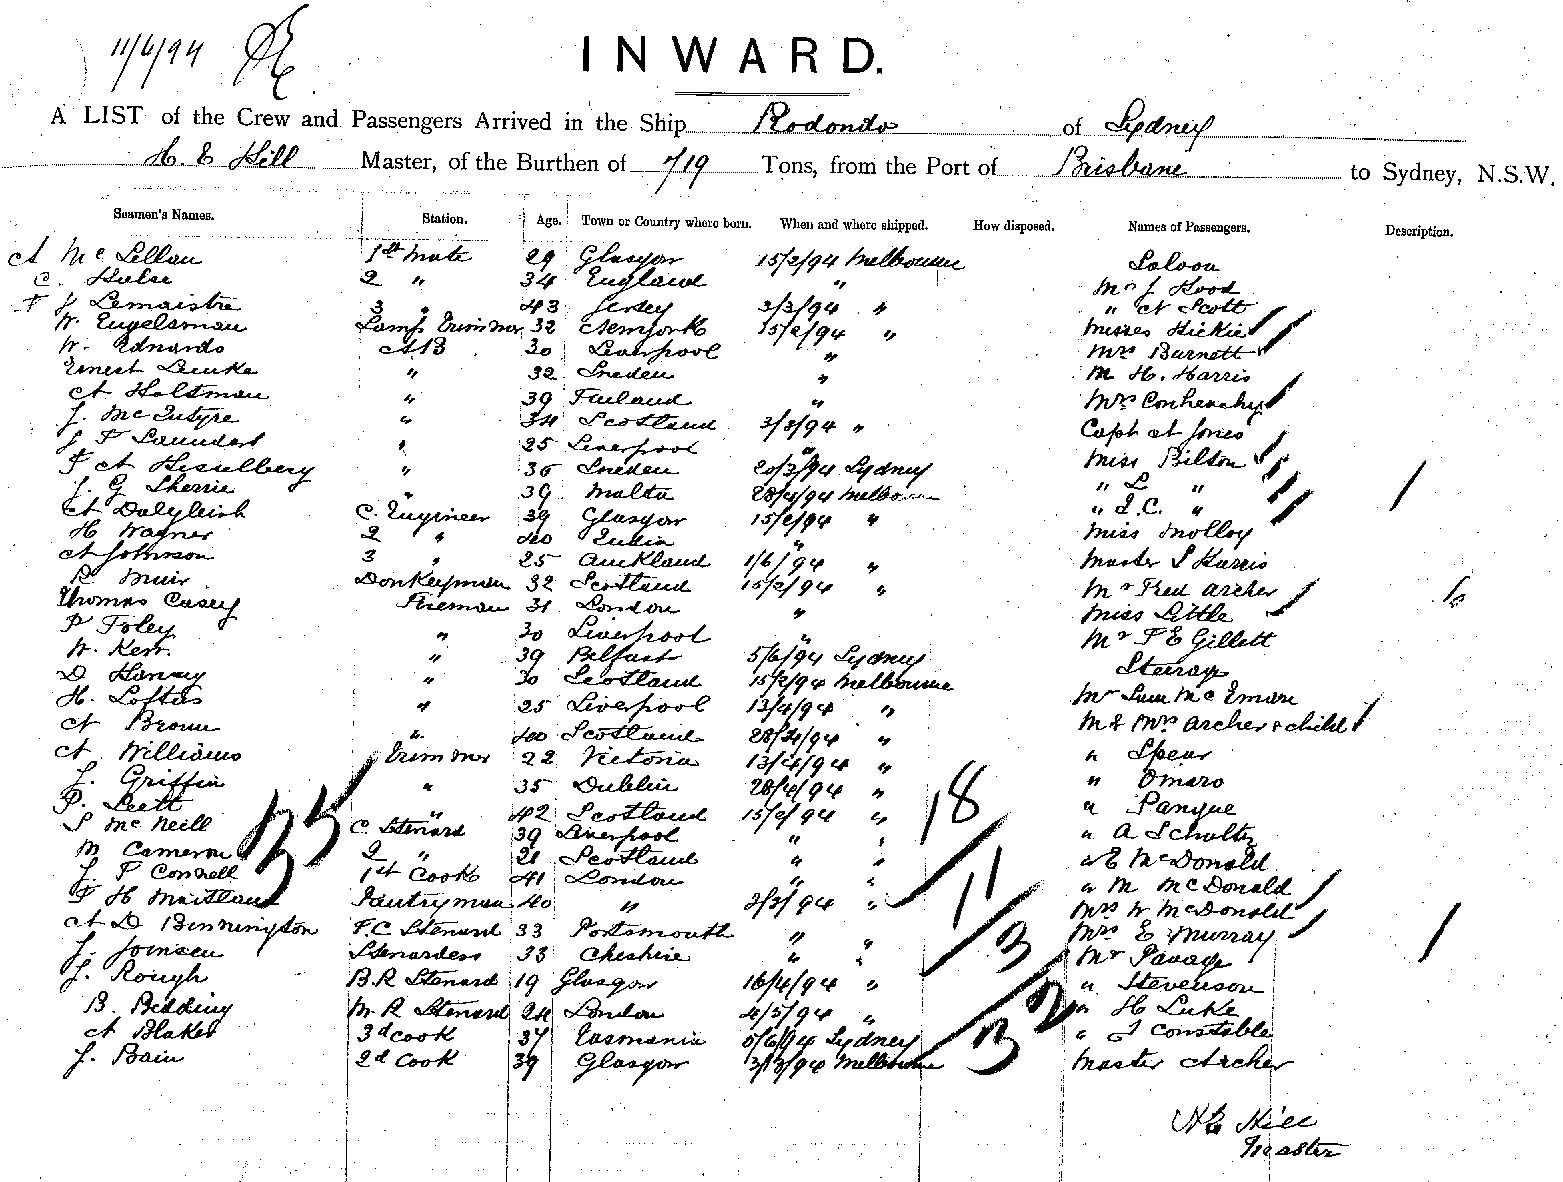 11/6/94
INWARD.
A LIST of the Crew and Passengers Arrived in the Ship Rodondo of Sydney
H. E Hill Master, of the Burthen of 719 Tons, from the Port of Brisbane to Sydney, N.S.W.
Seamen's Names. Station. Age. Town or Country where born. When and where shipped. How disposed. Names of Passengers. Description.
A McLellan 1st Mate 29 Glasgow 15/2/94 Melbourne Saloon
C. Hulse 2 " 34 England " Mr J Hood
F J Lemaistre 3 " 43 Jersey 3/3/94 " " A Scott
W. Engelsman Lamp Trimmer 32 Newyork 15/2/94 " Misses Hickie
W. Edwards AB 30 Liverpool " Mrs Burnett
Ernest Lemke " 32 Sweden " M H. Harris
A Holtsman " 39 Finland " Mrs
J. McIntyre " 34 Scotland 3/3/94 " Capt A Jones
J F Saunders " 25 Liverpool " Miss Bilson
F A Hesselberg " 36 Sweden 20/3/94 Sydney " L "
J. G Sherrie " 39 Malta 28/4/94 Melbourne " I.C. "
A Dalgleish C. Engineer 39 Glasgow 15/2/94 " Miss Molloy
H Wagner 2 " 40 India " Master S Harris
A Johnson 3 " 25 Auckland 1/6/94 " Mr Fred Archer
R Muir Donkeyman 32 Scotland 15/2/94 " Miss Little
Thomas Casey Fireman 31 London " Mr F E Gillett
P Foley " 30 Liverpool " Steerage
W. Kerr " 39 Belfast 5/6/94 Sydney Mr Sum
D Harvey " 30 Scotland 15/2/94 Melbourne M & Mrs Archer & child
H. Loftus " 25 Liverpool 13/4/94 " " Spear
A Brown " 40 Scotland 28/4/94 " " Omaro
A Williams Trimmer 22 Victoria 13/4/94 " " Panque
J. Griffin " 35 Dublin 28/4/94 " " A Schultz
P. Scott " 42 Scotland 15/2/94 " " E McDonald
S McNeill C. Steward 39 Liverpool " " " M McDonald
M Cameron 2 " 21 Scotland " " Mrs W McDonald
J. P Connell 1st Cook 41 London " " Mrs E Murray
F H Maitland Pantryman 40 " 3/3/94 " Mr Savage
A D Binnington F.C Steward 33 Portsmouth " " " Stevenson
J. Joinsen Stewardess 33 Cheshire " " " H Luke
J. Rough B.R Steward 19 Glasgow 16/4/94 " " J Constable
B. Bedding M R Steward 24 London 4/5/94 " Master Archer
A Blaker 3d Cook 37 Tasmania 5/6/94 Sydney
J. Bain 2d Cook 39 Glasgow 3/3/94 Melbourne
35
18
11
3
32
H E Hill
Master